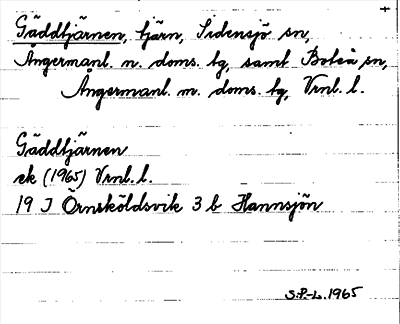 +
Gäddtjärnen, tjärn, Sidensjö sn,
Ångermanl. n. doms. tg, samt Boteå sn,
Ångermanl. m. doms. tg, Vrnl. l.
Gäddtjärnen
ek (1965) Vrnl. l.
19 J Örnsköldsvik 3 b Hannsjön
S.P.-L. 1965